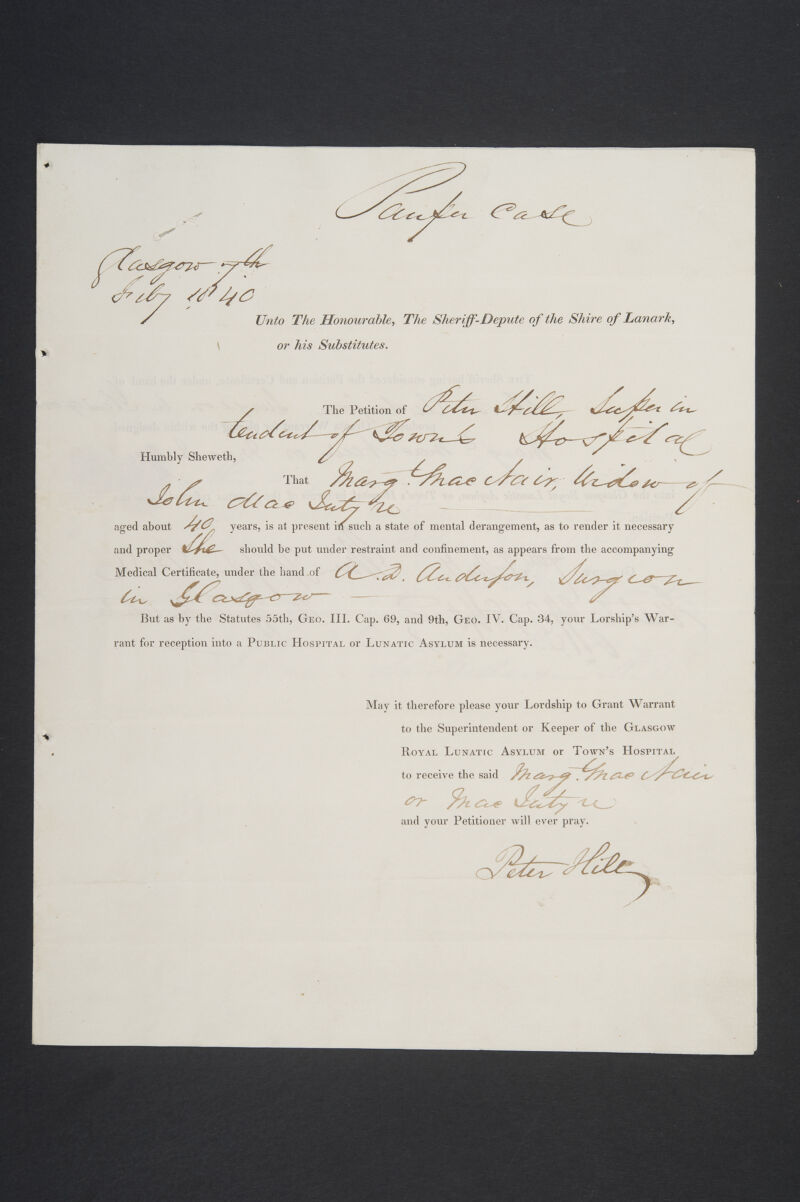 Pauper Case
Glasgow 7th
Feby 1840
Unto The Honourable, The Sheriff-Depute of the Shire of Lanark,
or his Substitutes.
The Petition of Peter Hill, Superin
tendent of Town's Hospital
Humbly Sheweth,
That Margt. Mac Nair, Widow of
John Mac Intyre
aged about 40 years, is at present in such a state of mental derangement, as to render it necessary
and proper She should be put under restraint and confinement, as appears from the accompanying
Medical Certificate, under the hand of A. D. Anderson, Surgeon
in Glasgow
But as by the Statutes 55th, Geo. III. Cap. 69, and 9th, Geo. IV. Cap. 34, your Lorship's War-
rant for reception into a Public Hospital or Lunatic Asylum is necessary.
May it therefore please your Lordship to Grant Warrant
to the Superintendent or Keeper of the Glasgow
Royal Lunatic Asylum or Town's Hospital
to receive the said Margt. Mac Nair
or Mac Intyre
and your Petitioner will ever pray.
Peter Hill